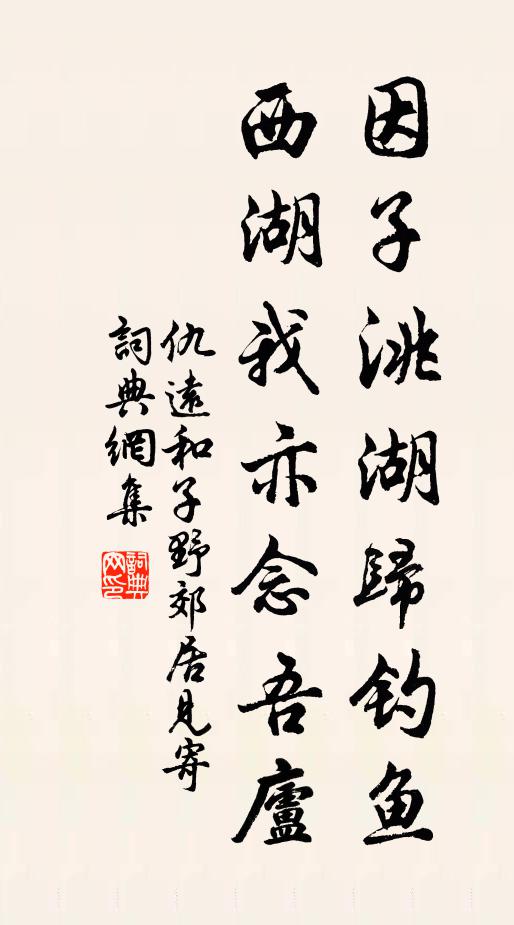 因子洮湖歸钓鱼
西湖我亦念吾廬
仇遠和子野郊居見寄
詞典網集
詞典
网印